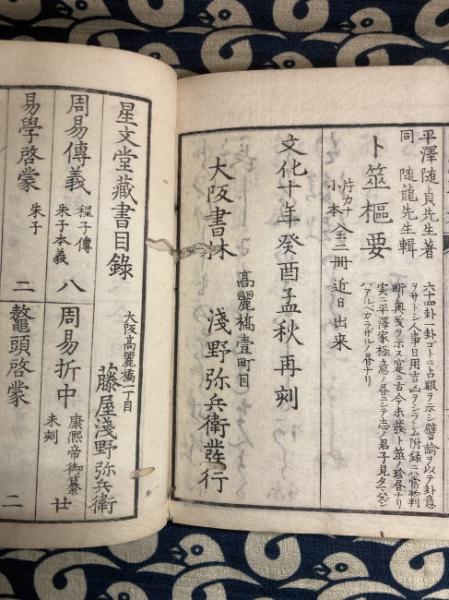 平澤随貞先生著
同 随龍先生輯
卜筮樞要
片カナ
小本全二冊近日出来
六十四卦一卦ゴトニ占眼ヲ示シ譬諭ヲ以テ卦意
ヲサトシ人事日用吉凶ヲシラシム附録ニハ當物判
断ノ奥義ヲ
実ニ平澤家極意ノ各ニシテ志ノ君子見タマハズン
ハアルベカラザルノ各ナリ
文化十年癸酉孟秋再刻
大阪書林
高麗橋壹町目
淺野弥兵衛發行
星文堂藏書目錄
大坂高麗橋一丁目
藤屋淺野弥兵衛
周易傳義
程子傳
朱子本義
八
周易折中
康熙帝御纂
未刻
廿
易學啓蒙
朱子
二
鼇頭啓蒙
二